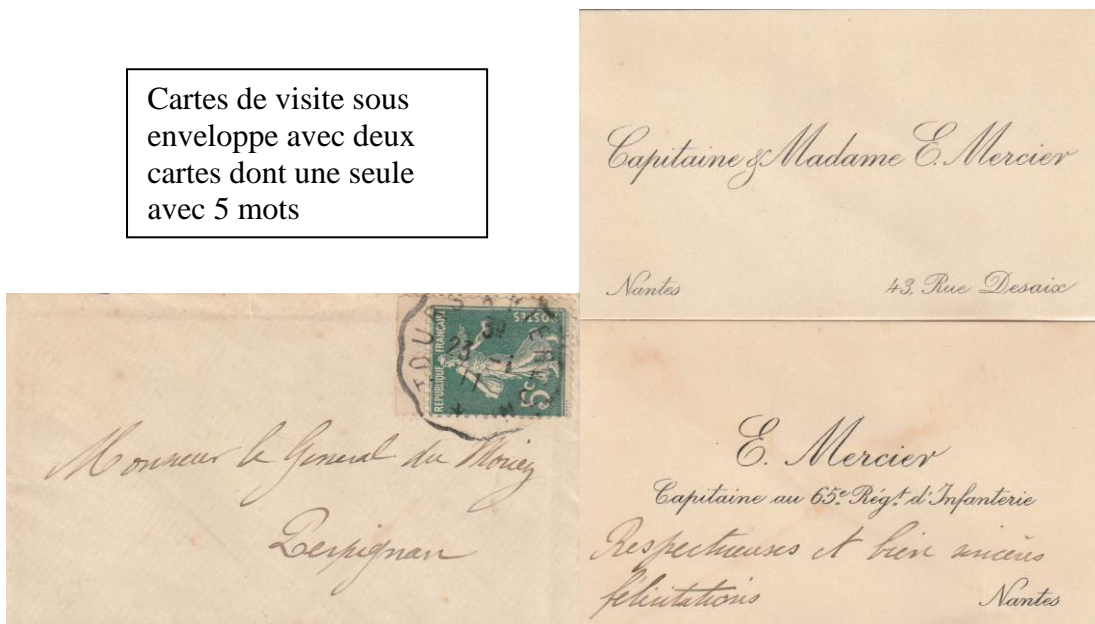 Cartes de visite sous
enveloppe avec deux
cartes dont une seule
avec 5 mots
Capitaine & Madame E. Mercier
Nantes
43, Rue Desaix
REPUBLIQUE FRANÇAISE
POSTES
5c
23 - 1
11
Monsieur le General du
Perpignan
E. Mercier
Capitaine au 65e Régt d'Infanterie
Respectueuses et bien sincères
félicitations
Nantes